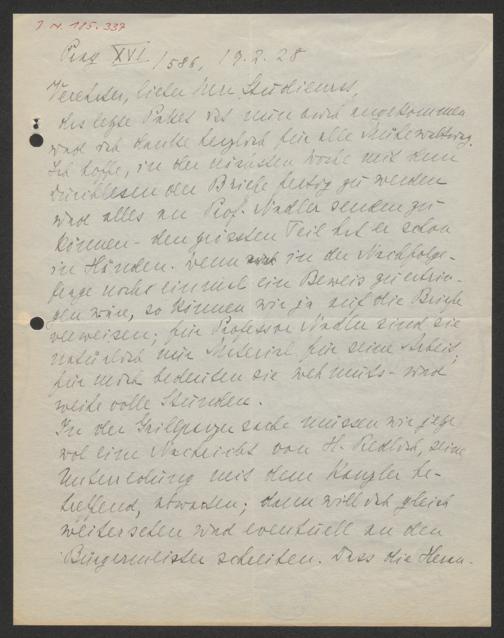 I.N. 185.337
Prag XVI/586, 19.2.28
Verehrter, lieber Herr Studienrat,
das letzte Paket ist nun auch angekommen
und ich danke herzlich für alle Mühewaltung.
Ich hoffe, in der nächsten Woche mit dem
Durchlesen der Briefe fertig zu werden
und alles an Prof. Nadler senden zu
können - den grössten Teil hat er schon
in Händen. Wenn in der Nachfolge-
frage noch einmal ein Beweis zu erbrin-
gen wäre, so können wir ja auf die Briefe
verweisen; für Professor Nadler sind sie
natürlich nur Material für seine Arbeit,
für mich bedeuten sie wehmuts- und
weihevolle Stunden.
In der Grillparzersache müssen wir jetzt
wol eine Nachricht von H. Redlich, seine
Unterredung mit dem Kanzler be-
treffend, abwarten; dann will ich gleich
weitersehen und eventuell an den
Bürgermeister schreiben. Dass die Herrn